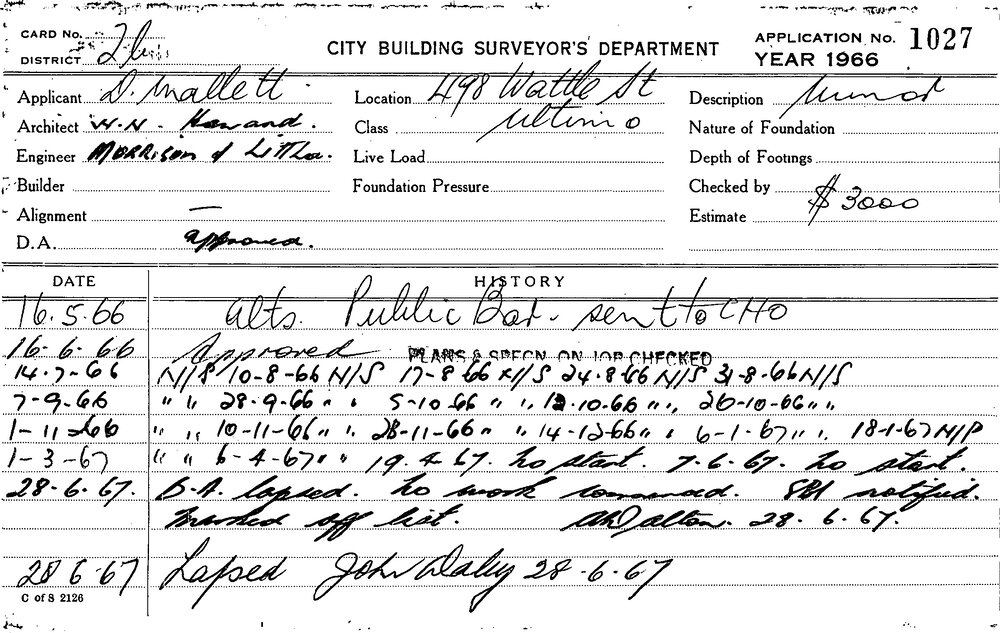 CARD No.
CITY BUILDING SURVEYOR'S DEPARTMENT
APPLICATION No. 1027
DISTRICT
YEAR 1966
Applicant D. Mallett
Location 498 Wattle St
Description Minor
Architect W. N. Howard.
Class Ultimo
Nature of Foundation
Engineer Morrison & Little.
Live Load
Depth of Footings
Builder
Foundation Pressure
Checked by
Alignment —
Estimate $3000
D.A. approved.
DATE HISTORY
16.5.66 alts. Public Bar - sent to CHO
16-6-66 Approved PLANS & SPECN. ON JOB CHECKED
14-7-66 N/S 10-8-66 N/S 17-8-66 N/S 24-8-66 N/S 31-8-66 N/S
7-9-66 " " 28-9-66 " " 5-10-66 " " 12-10-66 " " 26-10-66 " "
1-11-66 " " 10-11-66 " " 28-11-66 " " 14-12-66 " " 6-1-67 " " 18-1-67 N/P
1-3-67 " " 6-4-67 " " 19.4.67. no start. 7-6-67. no start.
28-6-67. B.A. lapsed. no work commenced. notified.
Marked off list. 28.6.67.
28 6.67 Lapsed John Daley 28-6-67
C of S 2126